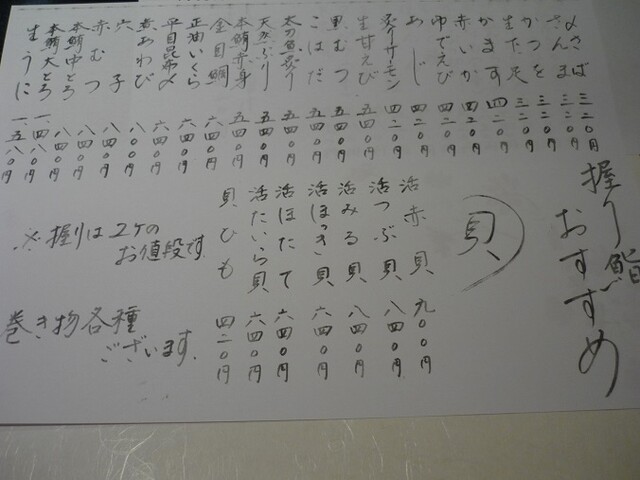 握り鮨
おすすめ
〆さば 三二〇円
さんま 三二〇円
かつを 三二〇円
生たこ足 三二〇円
かます 四二〇円
赤いか 四二〇円
ゆでえび 四二〇円
あじ 四二〇円
炙りサーモン 四二〇円
生甘えび 五四〇円
こはだ 五四〇円
黒むつ 五四〇円
太刀魚炙り 五四〇円
天然ぶり 五四〇円
本鮪赤身 五四〇円
金目鯛 六四〇円
正油いくら 六四〇円
平目昆布〆 六四〇円
煮あわび
穴子
赤むつ 八四〇円
本鮪中とろ 八四〇円
本鮪大とろ
生うに 一、五八〇円
貝
活赤貝 九〇〇円
活つぶ貝 八四〇円
活みる貝 八四〇円
活ほっき貝 六四〇円
活ほたて 六四〇円
活たいら貝 六四〇円
貝ひも 四二〇円
※握りは2ケの
お値段です.
巻き物各種
ございます.